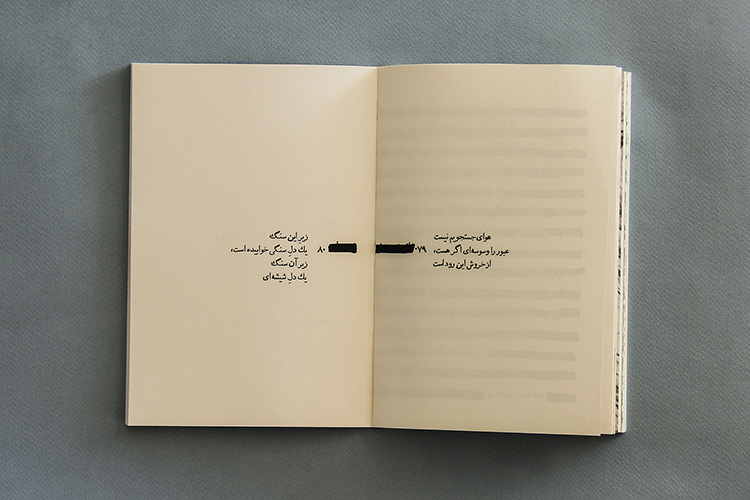 هوای جستجویم نیست
عبور را وسوسه‌ای اگر هست،
از خروش این رود است
۰۷۹
زیر این سنگ
یك دلِ سنگی خوابیده است،
زیر آن سنگ
یك دلِ شیشه‌ای
۸۰